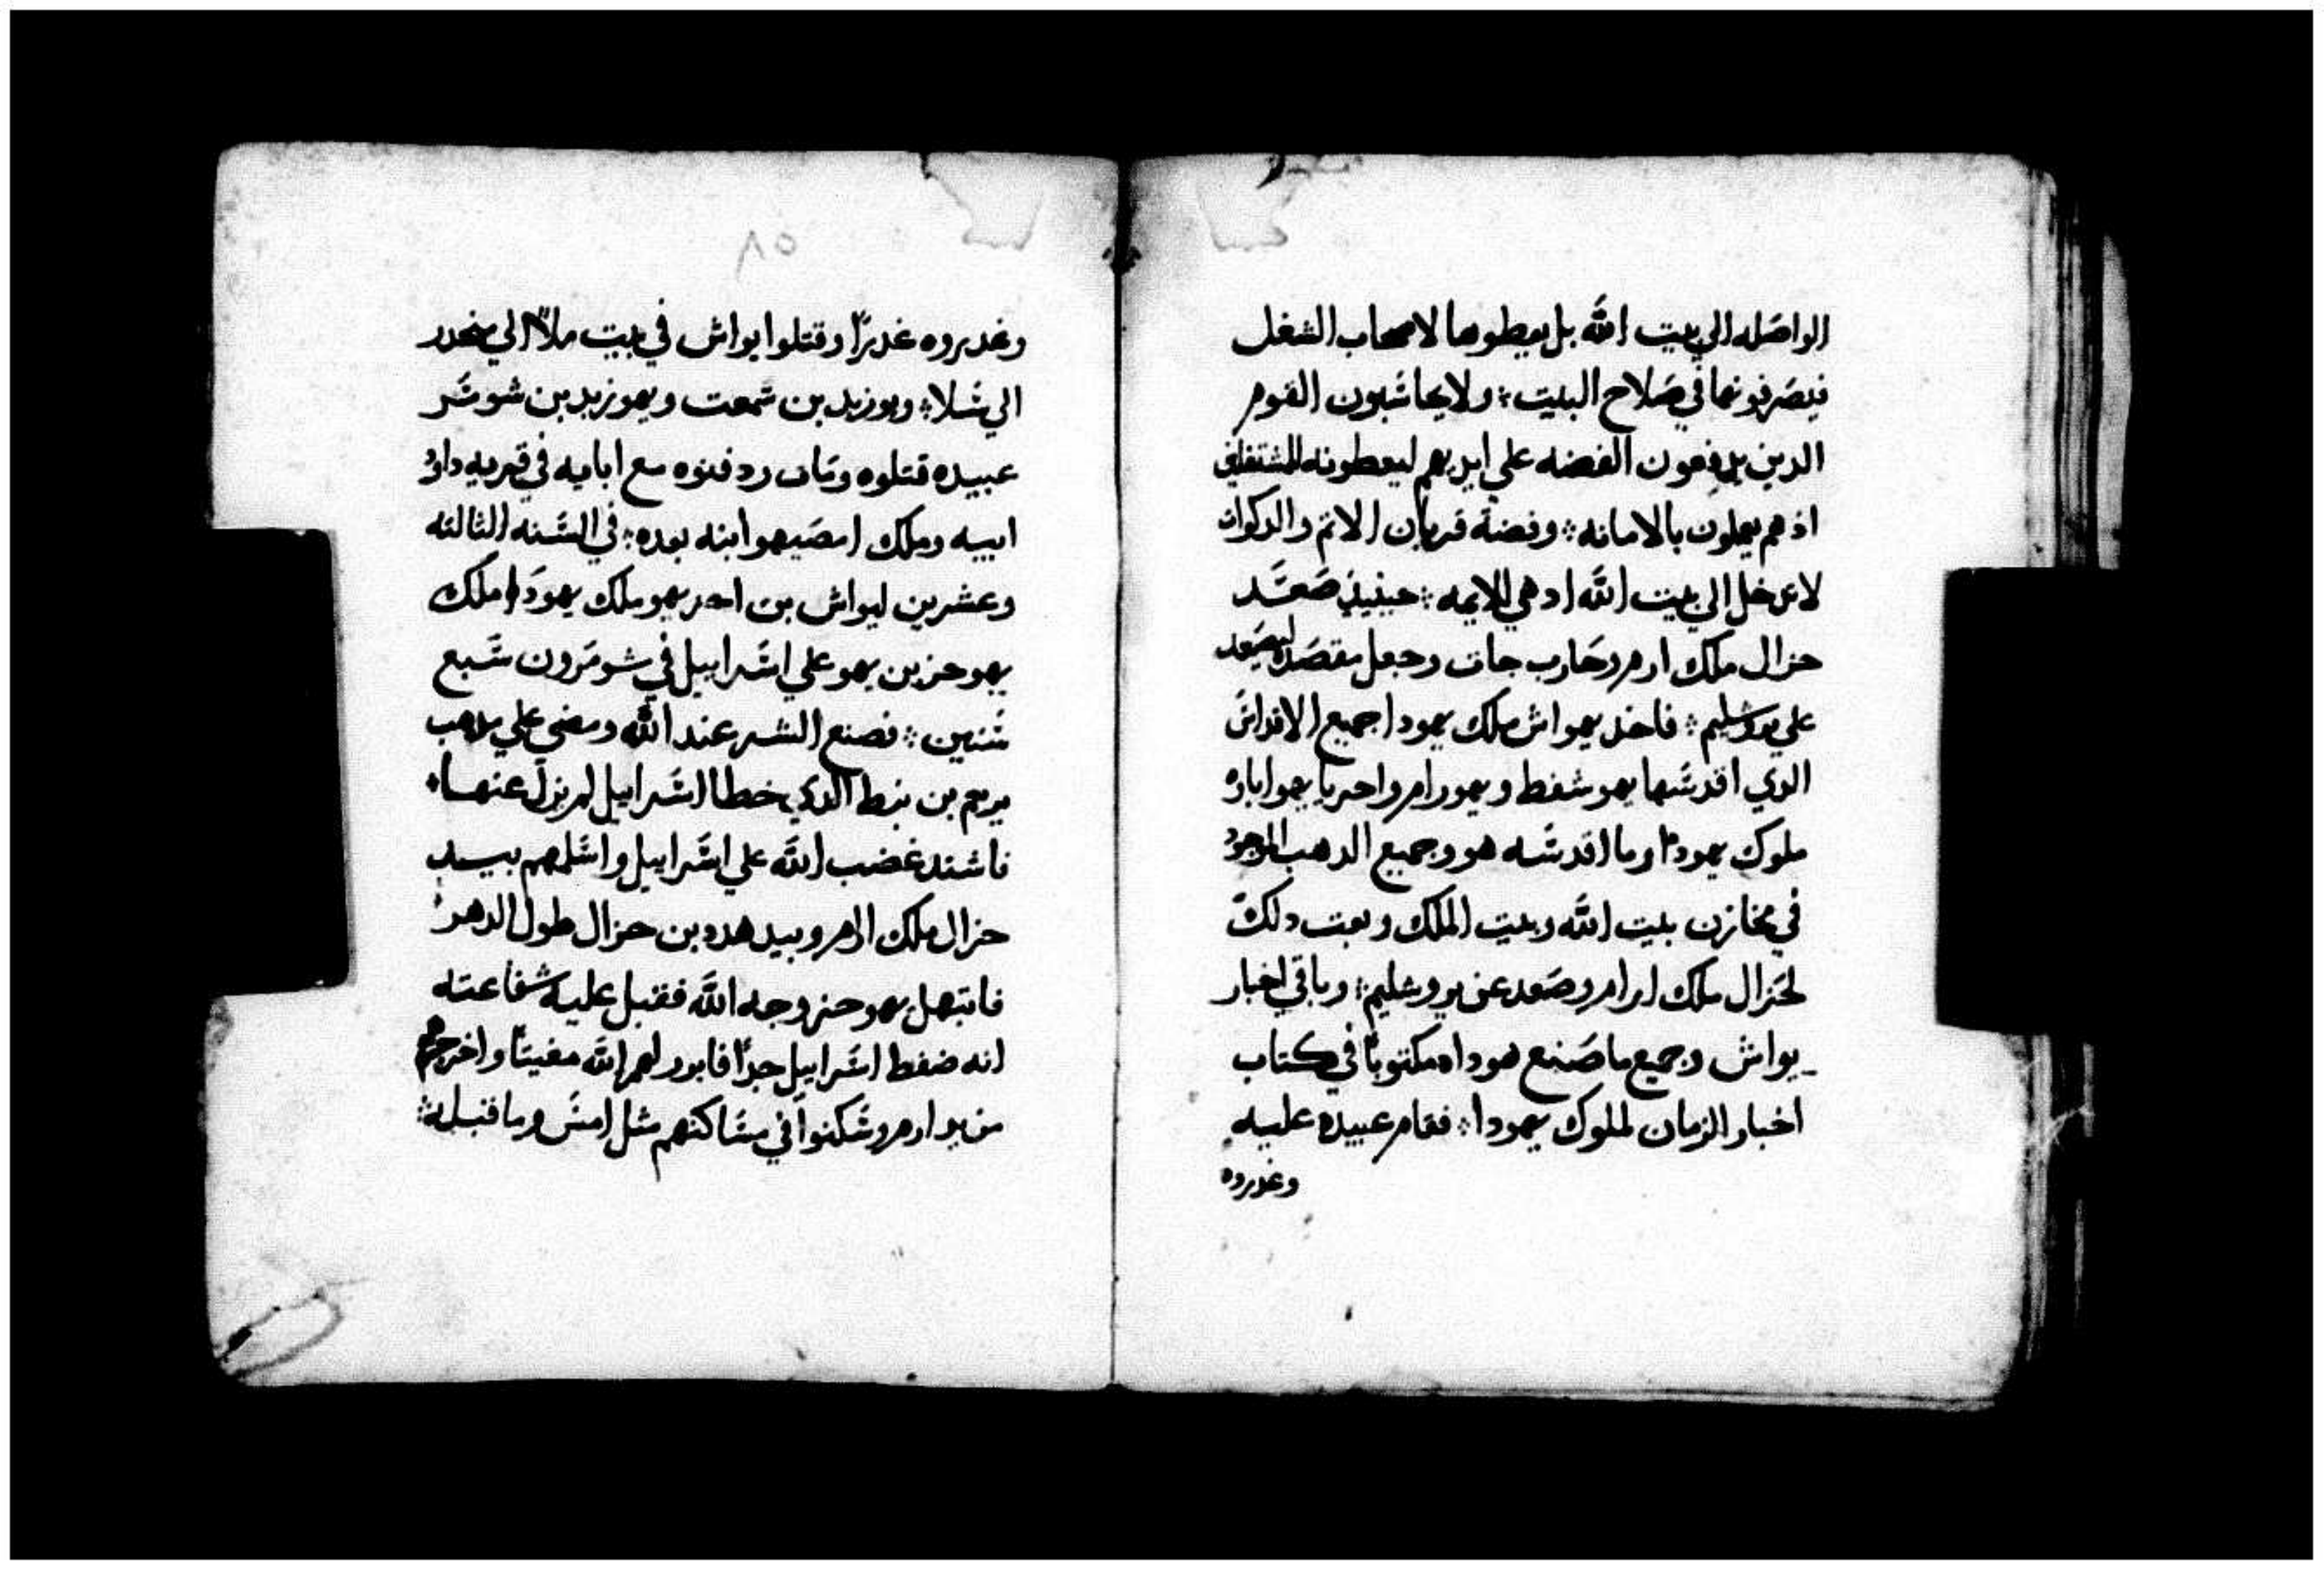 الواصله الي بيت الله بل يعطوها لاصحاب الشغل
فيصرفونها في صلاح البيت ؞ ولا يحاشبون القوم
الدين يدفعون الفضه علي ايديهم ليعطونه للمشتغلين
اذ هم يعملون بالامانه ؞ وفضة قربان الاثم والدكوات
لا تدخل الي بيت الله اد هي للايمه ؞ حينيذ صعد
حزال ملك ارم وحارب جات وجعل مقصده ليصعد
علي يروشليم ؞ فاخد يهواش ملك يهودا جميع الاقداش
الدي اقدشها يهوشفط ويهورام واحزياهو اباوه
ملوك يهودا وما اقدشه هو وجميع الدهب الموجود
في مخازن بيت الله وبيت الملك وبعت دلك
لحزال ملك ارام وصعد عن يروشليم ؞ وباقي اخبار
يواش وجميع ما صنع هوداه مكتوبا في كتاب
اخبار الزمان لملوك يهودا ؞ فقام عبيده عليه
وغدروه
٨٥
وغدروه غدرا وقتلوا يواش في بيت ملاا الي ينحدر
الي شلا ؞ ويوزبد بن شمعت ويهوزبد بن شومر
عبيده قتلوه ومات ودفنوه مع ابايه في قريه داود
ابيه وملك امصيهو ابنه بعده ؞ في السنه الثالثه
وعشرين ليواش بن احزيهو ملك يهودا ملك
يهوحز بن يهو علي اشراييل في شومرون شبع
شنين ؞ فصنع الشر عند الله ومضي علي مدهب
يربعم بن نبط الدي خطا اشراييل لم يزل عنها
فاشتد غضب الله علي اشراييل واشلمهم بيد
حزال ملك ارم وبيد هدد بن حزال طول الدهر
فابتهل يهوحز وجه الله فقبل عليه شفاعته
انه ضغط اشراييل جدا فابور لهم الله مغيتا واخرجهم
من يد ارم وشكنوا في مشاكنهم مثل امش وما قبله ؞